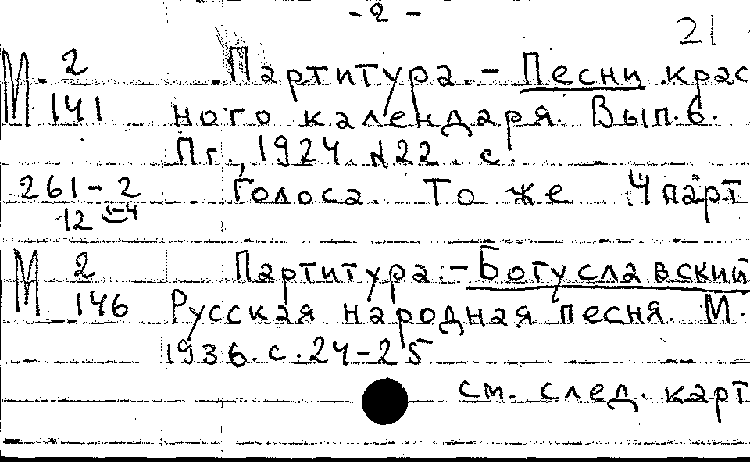 - 2 -
21
М 2 Партитура. - Песни крас
141 ного календаря. Вып. 6.
Пг., 1924 №22. с.
261-2 Голоса. То же 4 парт
12 5-4
М 2 Партитура. - Богуславский
146 Русская народная песня. М.
1936. с. 24-25
см. след. карт